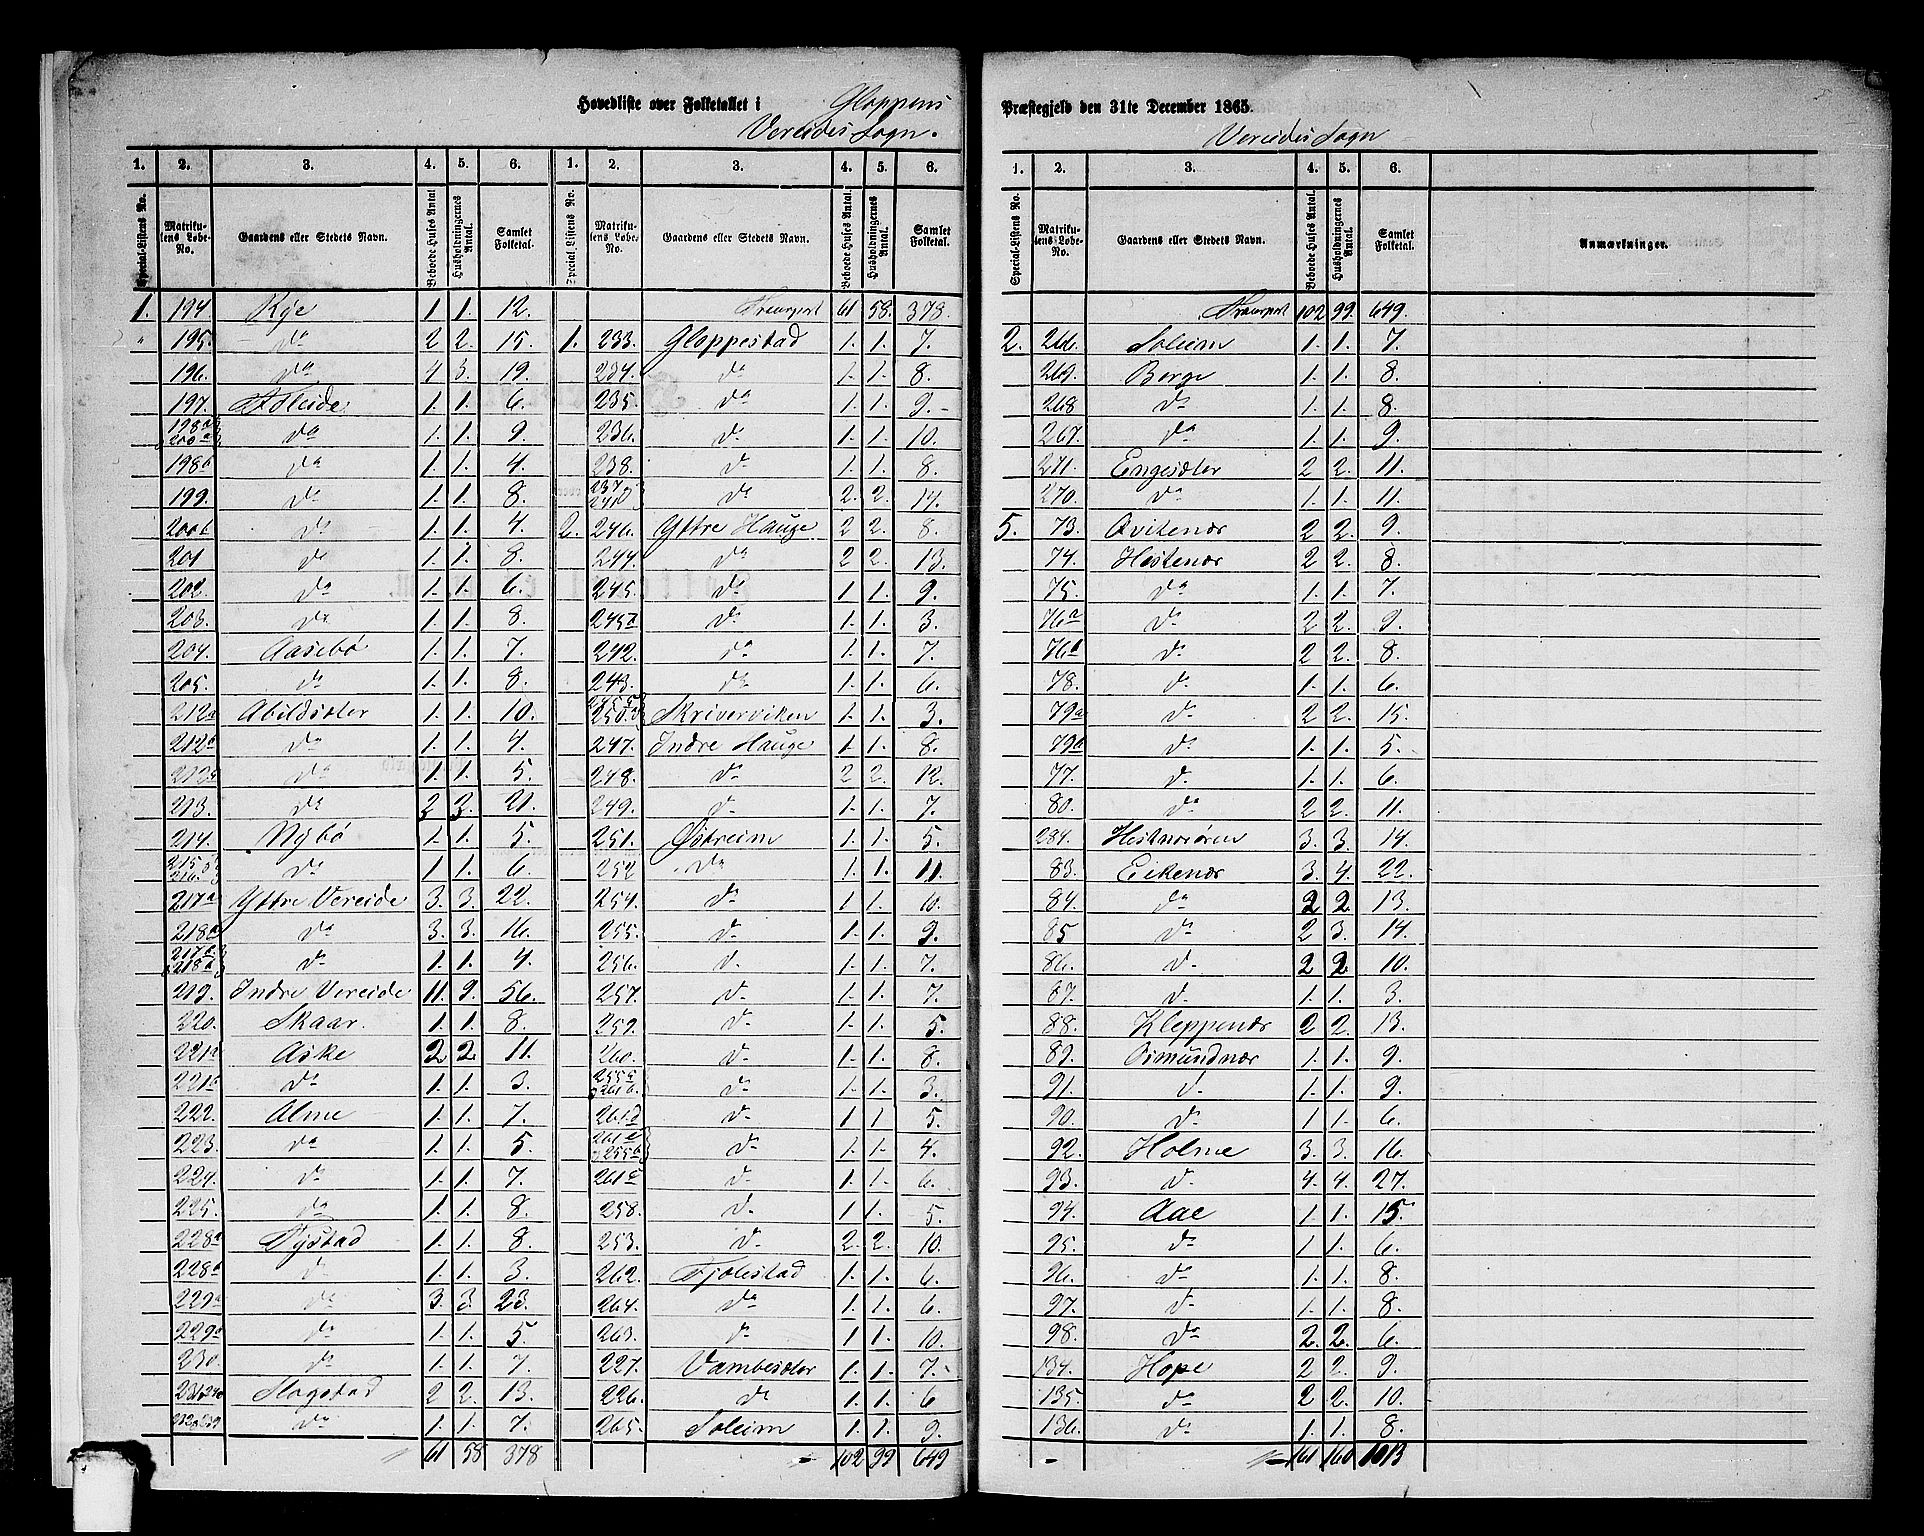 Hovedliste over Folketallet i Gloppens
Vereides Sogn.
1. 2. 3. 4. 5. 6. 1. 2. 3. 4. 5. 6.
Special-Listens No. Matrikulens Løbe-No. Gaardens eller Stedets Navn. Beboede Huses Antal Husholdningernes Antal. Samlet Folketal. Special Listens No. Matrikulens Løbe-No. Gaardens eller Stedets Navn. Beboede Huses Antal. Husholdningernes Antal. Samlet Folketal.
1. 194 Rye 1. 1. 12.
" 195. da 2 2. 15.
196. da 4 3. 19.
197. Føleide 1. 1. 6.
198a 200a da 1. 1. 9.
198b da 1. 1. 4.
199. da 1. 1. 8.
200b da 1. 1. 4.
201 da 1. 1. 8.
202. da 1. 1. 6.
203. da 1. 1. 8.
204. Aasebø 1. 1. 7.
205. da 1. 1. 8.
212a Abildsæter 1. 1. 10.
212b da 1. 1. 4.
212c da 1. 1. 5.
213. da 3. 21.
214. Nybø 1. 1. 5.
215 216. da 1. 1. 6.
217a Yttre Vereide 3. 3. 22.
218a da 3. 3. 16.
217b 218b da 1. 1. 4.
219. Indre Vereide 11. 9. 56.
220. Skaar. 1. 1. 8.
221a Aske 2 2. 11.
221b da 1. 1. 3.
222. Alme 1. 1. 7.
223. da 1. 1. 5.
224. da 1. 1. 7.
225. da 1. 1. 8.
228a Tystad 1. 1. 8.
228b da 1. 1. 3.
229a da 3. 3. 23.
229b da 1. 1. 5.
230. da 1. 1. 7.
Hogstad 2 2. 13.
da 1. 1. 7.
61 58 378
Transport 61 58. 378.
1. 233. Gloppestad 1. 1. 7.
234. da 1. 1. 8.
235. da 1. 1. 9.
236. da 1. 1. 10.
238. da 1. 1. 8.
237 da 2. 2. 14.
2. 246. Yttre Hauge 2 2. 8.
244. da 2 2. 13.
245. da 1. 1. 9.
245b da 1. 1. 3.
242. da 1. 1. 7.
243. da 1. 1. 6.
250. Skriverviken 1. 1. 3.
247. Indre Hauge 1. 1. 8.
248. da 2 2. 12.
249. da 1. 1. 7.
251. Østreim 1. 1. 5.
252 da 1. 1. 11.
254. da 1. 1. 10.
255. da 1. 1. 9.
256. da 1. 1. 7.
257. da 1. 1. 7.
259. da 1. 1. 5.
260. da 1. 1. 8.
255c 261b. da 1. 1. 3.
261d da 1. 1. 5.
261e 255b da 1. 1. 4.
261c da 1. 1. 6.
258. da 1. 1. 5.
253. da 2. 2. 10.
262. Fjølestad 1. 1. 6.
264. da 1. 1. 6.
263. da 1. 1. 10.
227. Vambesæter 1. 1. 7.
226. da 1. 1. 6
265. Soleim 1. 1. 9.
102 99 649
Præstegjeld den 31te December 1865.
Vereides Sogn
1. 2. 3. 4. 5. 6.
Special-Listens No. Matrikulens Løbe-No. Gaardens eller Stedets Navn. Beboede Huses Antal. Husholdningernes Antal. Samlet Folketal. Anmærkninger.
Transport 102 99. 649.
2. 266. Soleim 1. 1. 7.
269. Berge 1. 1. 8.
268 da 1. 1. 8.
267. da 1. 1. 9.
271. Engesæter 2 2. 11.
270. da 1. 1. 11.
5. 73. Qvitenær 2 2. 9.
74. Hestenær 2 2. 8.
75. da 1. 1. 7.
76a da 2 2. 9.
76b da 2 2. 8.
78. da 1. 1. 6.
79a da 2 2. 15.
79b da 1. 1. 5.
77. da 1. 1. 6.
80. da 2 2. 11.
284. Hestnærøren 3. 3. 14.
83. Eikenær 3. 4. 22.
84. da 2 2. 13.
85 da 2 3. 14.
86. da 2 2 10.
87. da 1. 1. 3.
88. Kleppenær 2 2. 13.
89. Osmundnær 1. 1. 9.
91. da 1. 1. 9.
90. da 1. 1. 6.
92. Holme 3. 3. 16.
93. da 4. 4. 27.
94. Aae 1. 1. 15.
95. da 1. 1. 6.
96. da 1. 1. 8.
97. da 1. 1. 8.
98. da 2. 2. 6.
134. Hope 2 2. 9.
135. da 2 2. 10.
136. da 1. 1. 8.
161 160 1013